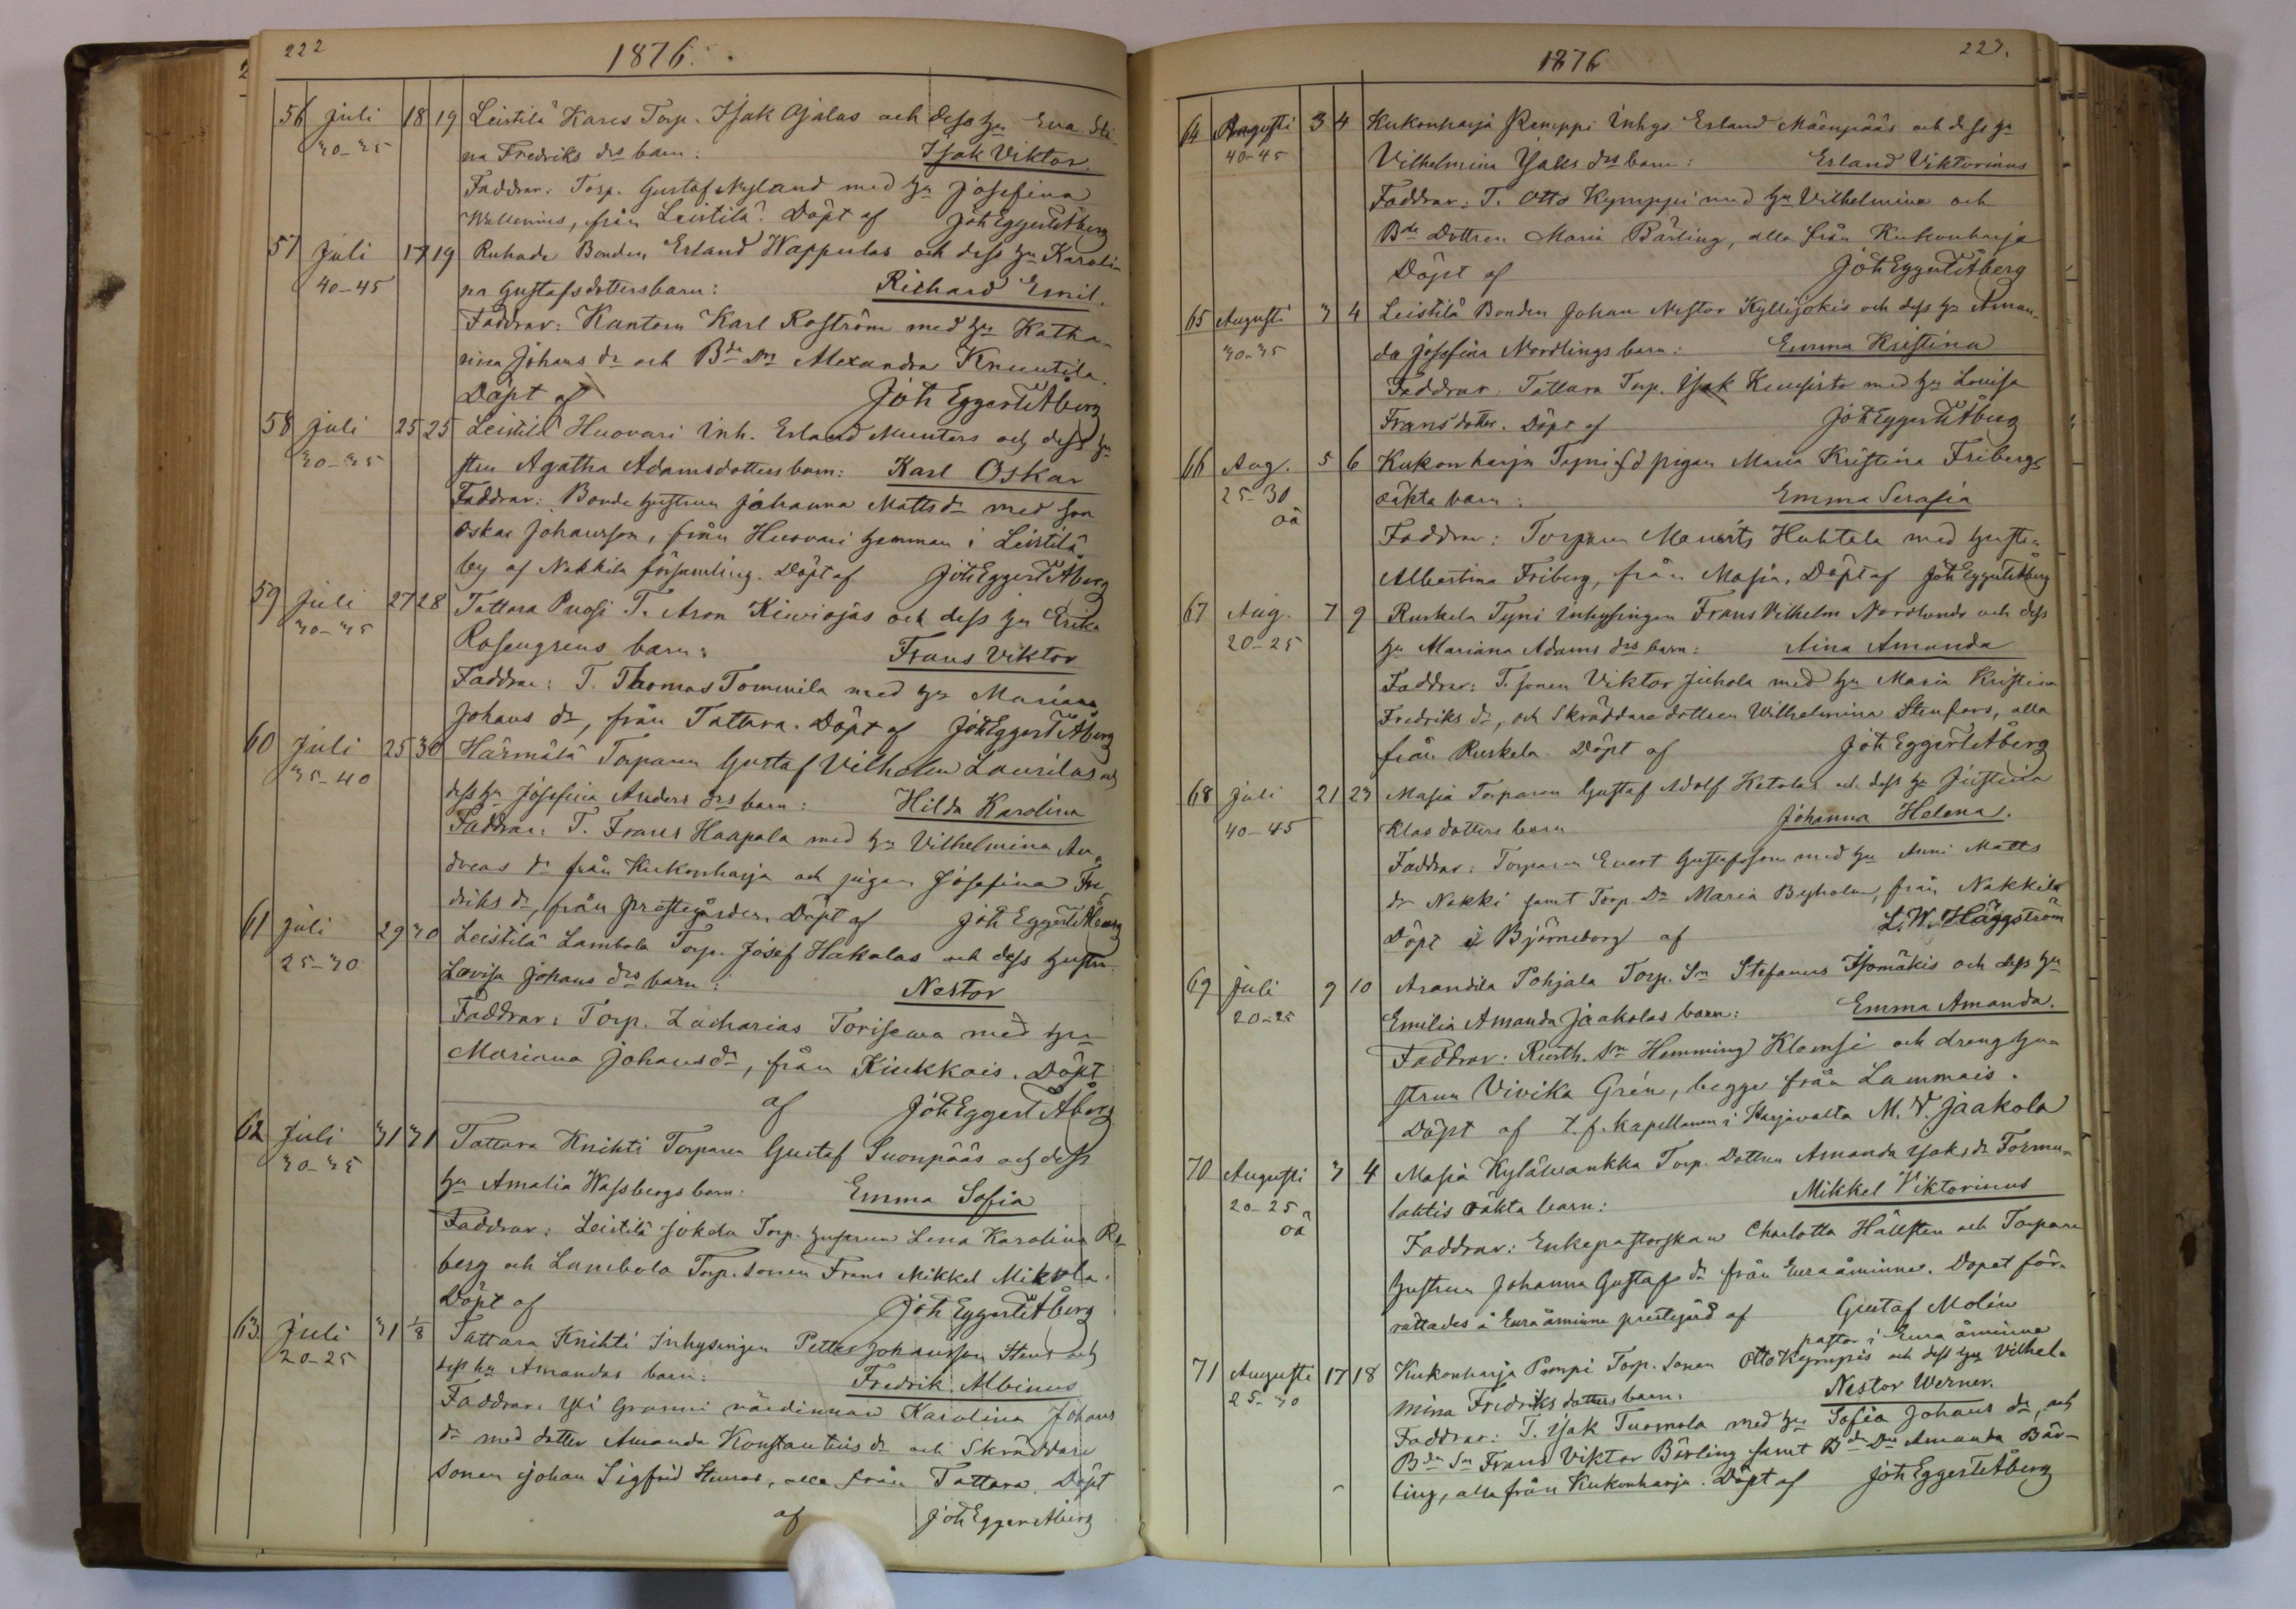 222
1876.
56 Juli 18 19 Leistilä Kares Torp. Isak Ojalas och dess hu Eva Sti-
30-35 na Fredriks drs barn: Isak Viktor.
Faddrar: Torp. Gustaf Nyland med hu Josefina
Wallenius, från Leistilä. Döpt af Joh Eggert Åberg
57 Juli 17 19 Ruhade Bonden Erland Wappulas och dess hu Karoli-
40-45 na Gustafsdotters barn: Richard Emil.
Faddrar: Kantorn Karl Roström med hu Katha-
rina Johans dr och Bde Dn Alexandra Knuutila.
Döpt af Joh Eggert Åberg
58 Juli 25 25 Leistilä Huovari Inh. Erland Munters och dess hu
30-35 stru Agatha Adamsdotters barn: Karl Oskar
Faddrar: Bonde hustrun Johanna Matts dr med son
Oskar Johansson, från Huovari hemman i Leistilä
by af Nakkila församling. Döpt af Joh Eggert Åberg
59 Juli 27 28 Tattara Pussi T. Aron Kiwiojas och dess hu Erika
30-35 Rosengrens barn: Frans Viktor
Faddrar: T. Thomas Tommila med hu Mariana
Johans dr, från Tattara. Döpt af Joh Eggert Åberg
60 Juli 25 30 Härmälä Torparen Gustaf Vilhelm Laurilas och
35-40 dess hu Josefina Anders drs barn: Hilda Karolina
Faddrar: T. Frans Haapala med hu Vilhelmina An-
dreas dr från Kukonharja och pigan Josefina Fre
driks dr, från prostegården. Döpt af Joh Eggert Åberg
61 Juli 29 30 Leistilä Lambola Torp. Josef Hakalas och dess hustru
25-30 Lovisa Johans drs barn: Nestor
Faddrar: Torp. Zacharias Torisewa med hu
Mariana Johans dr, från Kiukkais. Döpt
af Joh Eggert Åberg
62 Juli 31 31 Tattara Knihti Torparen Gustaf Suonpääs och dess
30-35 hu Amalia Wassbergs barn: Emma Sofia
Faddrar: Leistilä Jokela Torp. hustrun Lena Karolina
berg och Lambola Torp. sonen Frans Mikkel Mikola.
Döpt af Joh Eggert Åberg
63 Juli 31 1/8 Tattara Knihti Inhysingen Petter Johansson Stens och
20-25 dess hu Amandas barn: Fredrik Albinus
Faddrar: Yli Granni värdinnan Karolina Johans
dr med dotter Amanda Konstantins dr och Skräddare
sonen Johan Sigfrid, alla från Tattara. Döpt
af Joh Eggert Åberg
1876
223.
64 Augusti 3 4 Kukonharja Pemppi Inhys Erland Mäenpääs och dess hu
40-45 Vilhelmina Isaks drs barn: Erland Viktorinus
Faddrar: T. Otto Kymppi med hu Vilhelmina och
Bde Dottren Maria Bärling, alla från Kukonharja
Döpt af Joh Eggert Åberg
65 Augusti 3 4 Leistilä Bonden Johan Nestor Kyllijokis och dess hu Aman-
30-35 da Josefina Nordlings barn: Emma Kristina
Faddrar: Tattara Torp. Isak Kuusisto med hu Lovisa
Fransdotter. Döpt af Joh Eggert Åberg
66 Aug. 5 6 Kukonharja Tyni f d pigan Maria Kristina Fribergs
25-30 oäkta barn: Emma Serafia
oä Faddrar: Torparen Maurits Huhtala med hustru
Albertina Friberg, från Masia. Döpt af Joh Eggert Åberg
67 Aug. 7 9 Ruskela Tyni Inhysingen Frans Vilhelm Nordlunds och dess
20-25 hu Mariana Adams drs barn: Aina Amanda
Faddrar: T. sonen Viktor Juhola med hu Maria Kristina
Fredriks dr, och Skräddare dottren Wilhelmina Stenfors, alla
från Ruskela. Döpt af Joh Eggert Åberg
68 Juli 21 23 Masia Torparen Gustaf Adolf Ketolas och dess hu Justina
40-45 Klas dotters barn Johanna Helena.
Faddrar: Torparen Evert Gustafsson med hu Anni Matts
dr Nakki samt Torp. Dr Maria Byholm, från Nakkila
Döpt i Björneborg af L.W. Häggström
69 Juli 9 10 Arandila Pohjala Torp. Sn Stefanus Isomäkis och dess hu
20-25 Emilia Amanda Jaakolas barn: Emma Amanda.
Faddrar: Rusth. Sn Hemming Klomsi och dreng hu
strun Vivika Grén, begge från Lammais.
Döpt af t. f. kapellanen i Harjavalta M. V. Jaakola
70 Augusti 3 4 Masia Kylävaukka Torp. Dottren Amanda Isaks dr Tormu-
20-25 lahtis oäkta barn: Mikkel Viktorinus
oä Faddrar: Enkepastorskan Charlotta Hällsten och Torpare
hustrun Johanna Gustafs dr från Euraåminne. Dopet för-
rättades å Euraåminne prestegård af Gustaf Molin
pastor i Eura åminne
71 Augusti 17 18 Kukonharja Pempi Torp. sonen Otto Kymppis och dess hu Vilhel-
25-30 mina Fredriks dotters barn: Nestor Werner.
Faddrar: T. Isak Tuomola med hu Sofia Johans dr, och
Bde Sn Frans Viktor Bärling samt Bde Dn Amanda Bär-
ling, alla från Kukonharja. Döpt af Joh Eggert Åberg